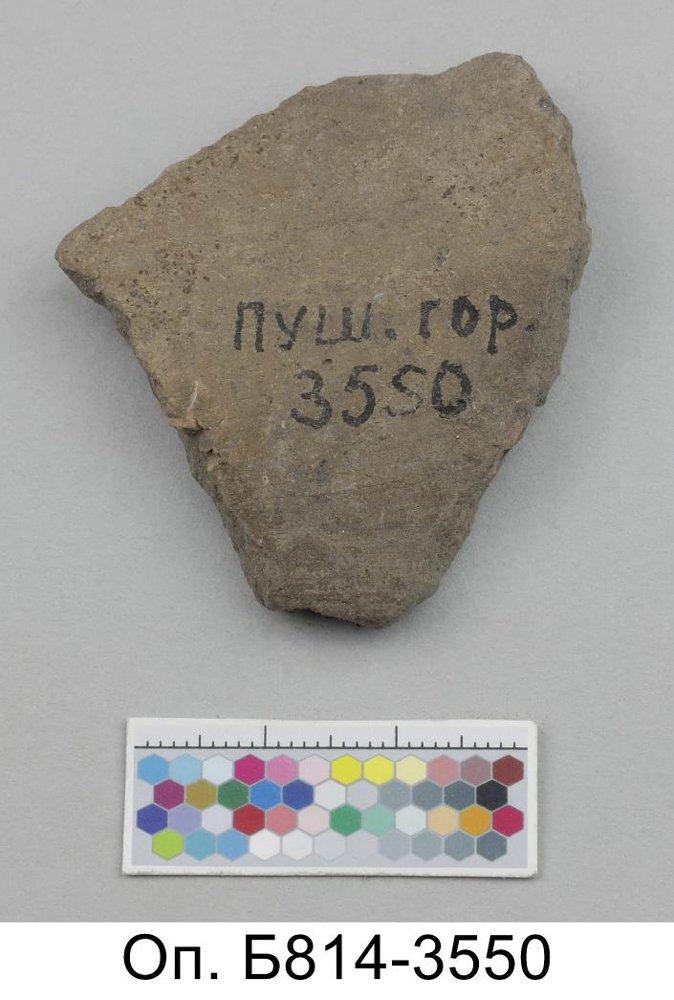 пуш. гор.
3550
Оп. Б814-3550